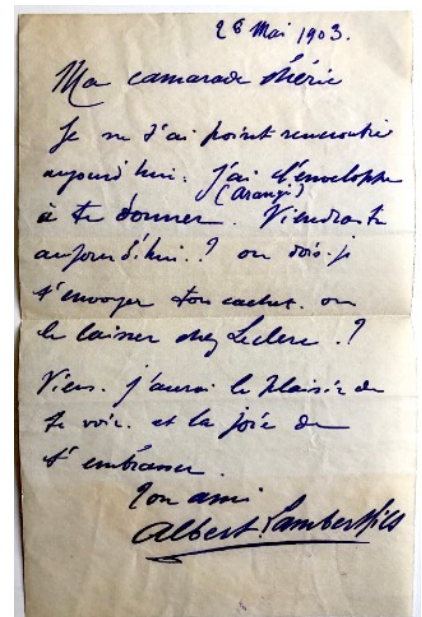 26 Mai 1903.
Ma camarade chérie
Je ne t'ai point rencontrée
aujourd'hui. j'ai l'enveloppe
(Orangé)
à te donner. Viendras tu
aujourd'hui.? ou dois-je
t'envoyer ton cachet. ou
le laisser chez Leclerc.?
Viens. j'aurai le plaisir de
te voir. et la joie de
t'embrasser.
Ton ami
Albert Lambert fils